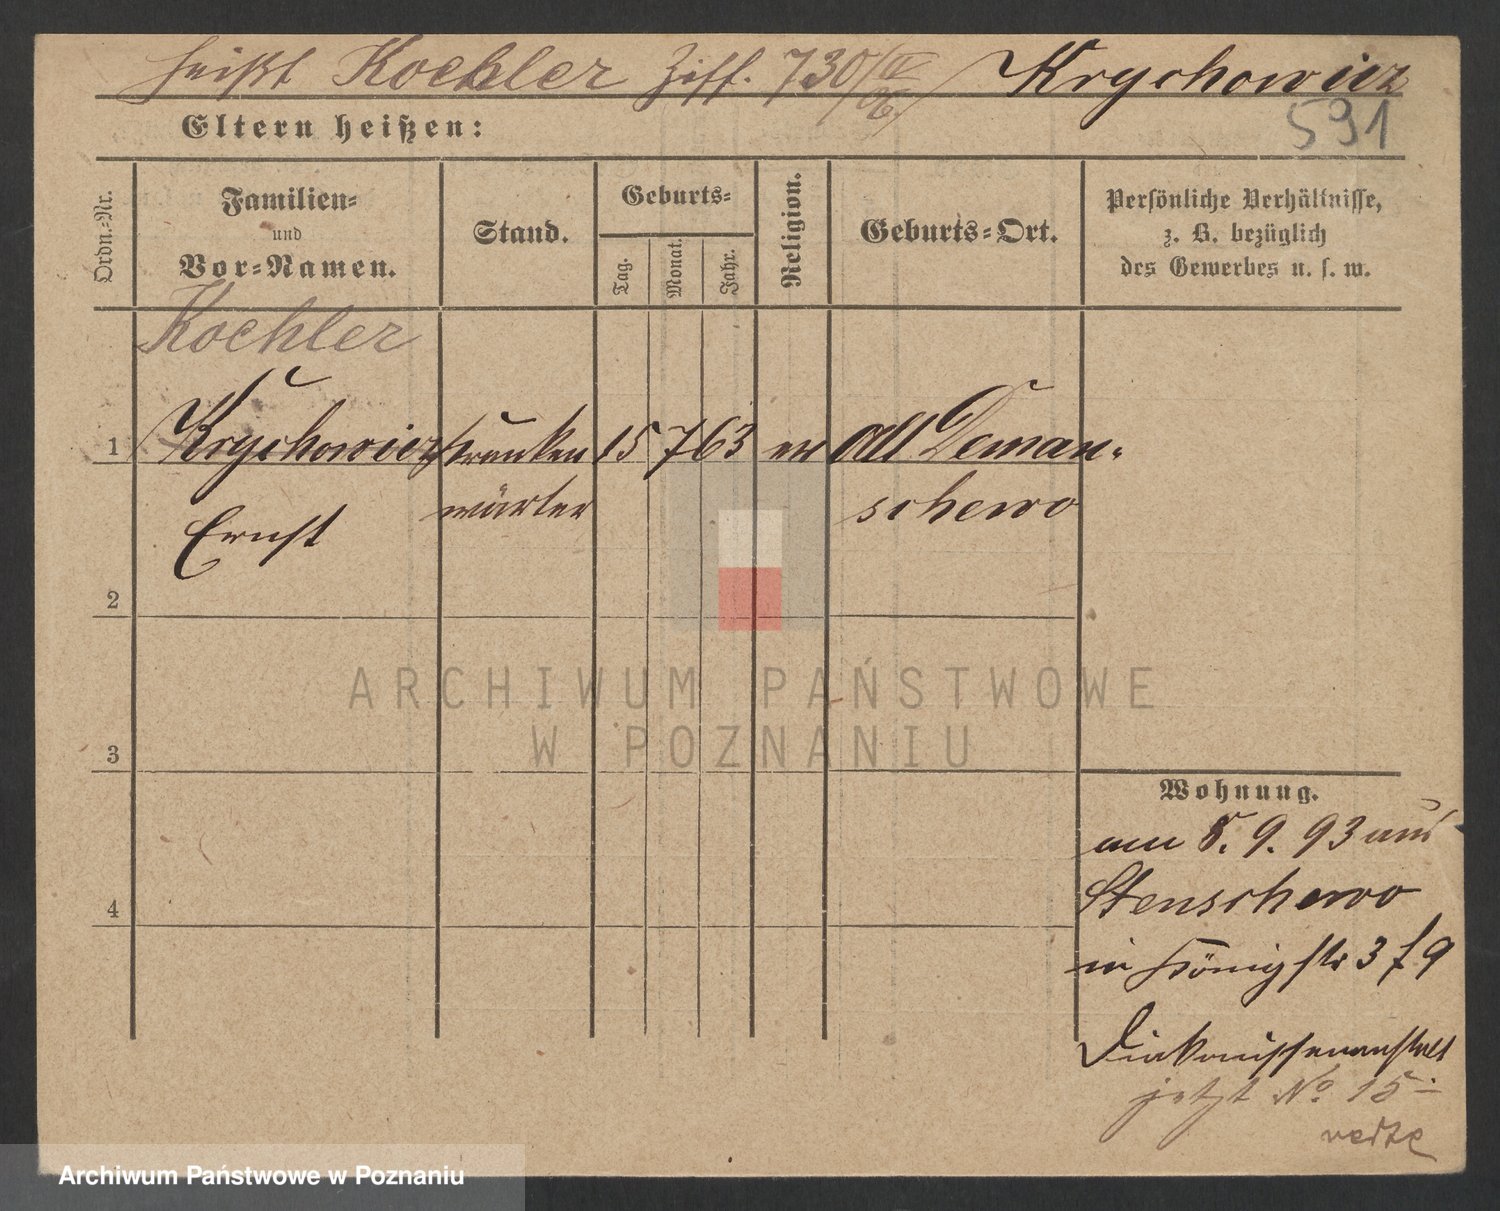 heißt Koehler Ziff. 730/IV 06. Krychowicz
591
Eltern heißen:
Ordn.-Nr.
Familien-
und
Vor-Namen.
Stand.
Geburts-
Tag.
Monat.
Jahr.
Religion.
Geburts-Ort.
Persönliche Verhältnisse,
z. B. bezüglich
des Gewerbes u. s. w.
Koehler
1 Krychowicz Kranken 15 7 63 ev Adl Deman-
wärter schewo
Ernst
2
3
4
Wohnung.
am 8. 9. 93 aus
Stenschewo
in Königstr 3 f 9
Diakonissenanstalt
jetzt No. 15
verte
ARCHIWUM PAŃSTWOWE
W POZNANIU
Archiwum Państwowe w Poznaniu